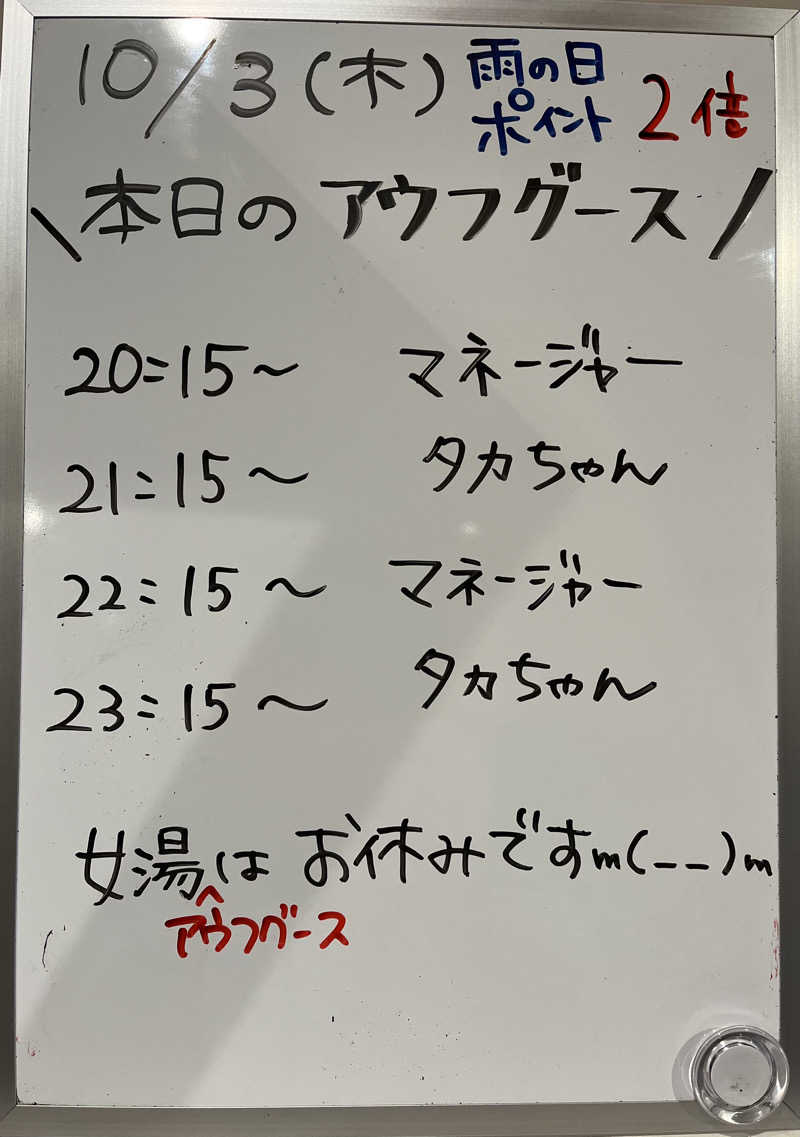 10/3(木) 雨の日ポイント 2倍
\本日のアウフグース/
20:15〜 マネージャー
21:15〜 タカちゃん
22:15〜 マネージャー
23:15〜 タカちゃん
女湯は お休みですm(__)m
^アウフグース